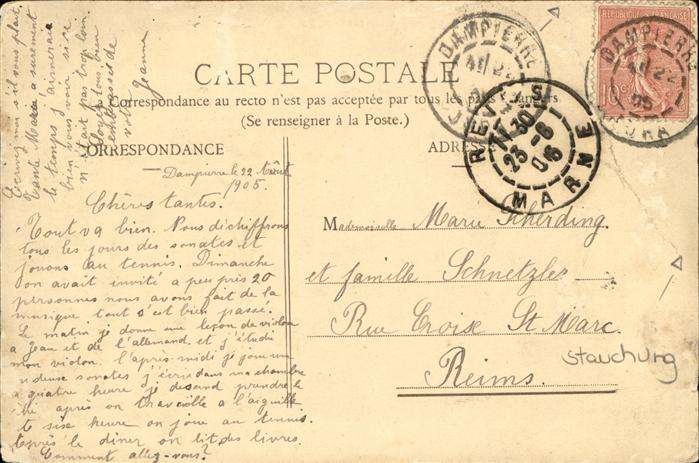 CARTE POSTALE
Correspondance au recto n'est pas acceptée par tous les pays
(Se renseigner à la Poste.)
CORRESPONDANCE
ADRES
DAMPIERRE
JURA
DAMPIERRE
22
05
JURA
REIMS
30
23-8
05
MARNE
RÉPUBLIQUE FRANÇAISE
10c
Dampierre le 22 Août
1905.
Chères tantes.
Tout va bien. Nous déchiffrons
tous les jours des sonates et
jouons au tennis. Dimanche
on avait invité a peu près 20
personnes nous avons fait de la
musique tout s'est bien passé.
Le matin je donne une leçon de violon
a Jean et de l'allemand et j'étudi
mon violon. l'après midi je joue un
deux sonates j'écris dans ma chambre
a quatre heure je desend prendre le
thé après on travaille a l'aiguille
te sise heure on joue au tennis.
Après le diner on lit des livres.
Comment allez-vous?
Ecrivez moi s'il vous plait.
Tante Maria a surement
le temps j'aimerais
bien vous voir si ce
n'était pas trop loin.
a tous bien
votre
Jeanne
Mademoiselle Marie Scherding.
et famille Schnetzler
Rue Croix St Marc.
Reims.
Stauchung